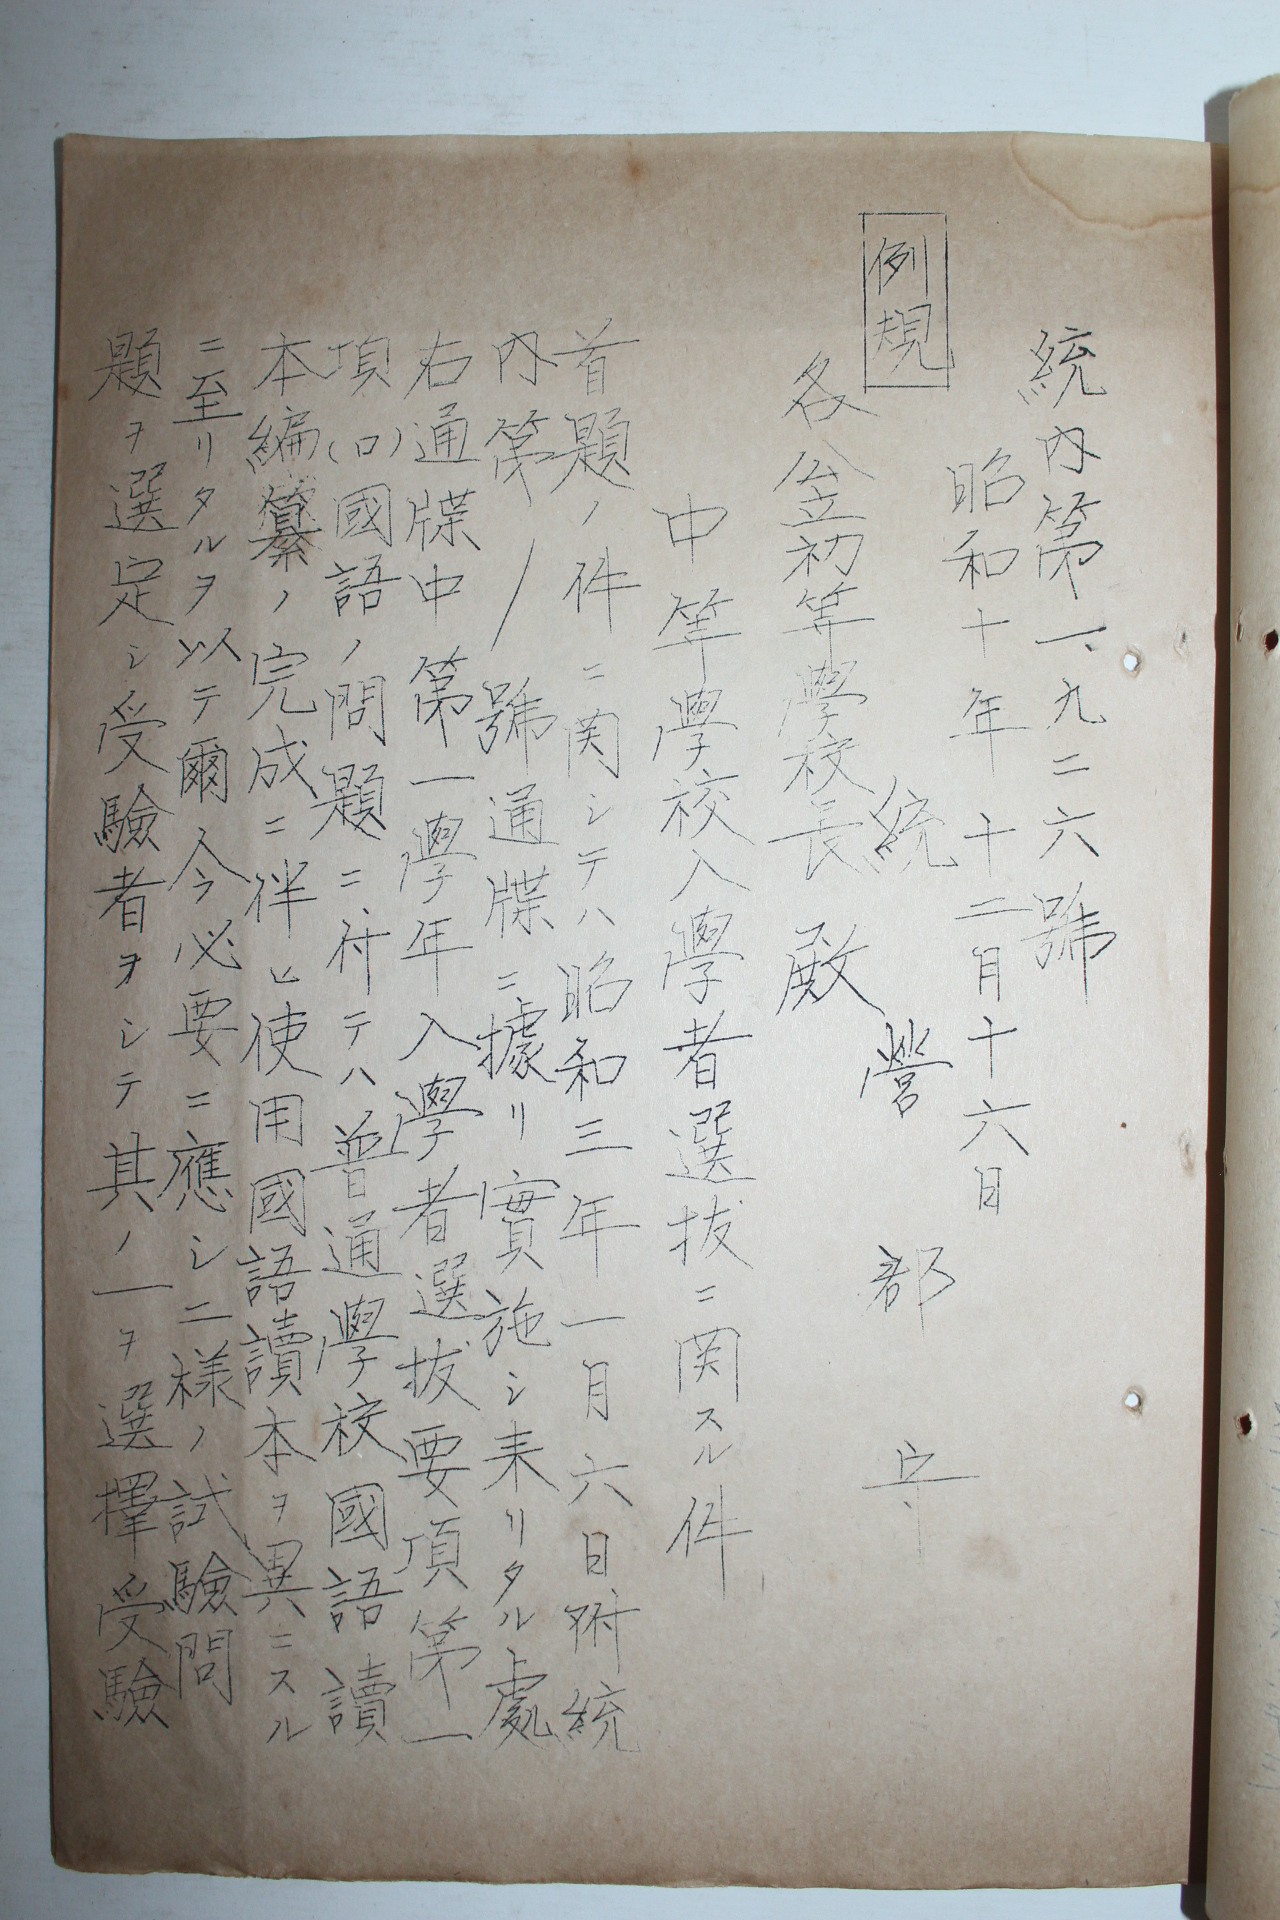 統内第一、九二六號
昭和十年十二月十六日
例規
統營郡守
各公立初等學校長殿
中等學校入學者選抜ニ関スル件
首題ノ件ニ関シテハ昭和三年一月六日附統
内第一號通牒ニ據リ實施シ来リタル處
右通牒中第一學年入學者選抜要項第一
項(ロ)國語ノ問題ニ付テハ普通學校國語讀
本編纂ノ完成ニ伴ヒ使用國語讀本ヲ異ニスル
ニ至リタルヲ以テ爾今必要ニ應シ二様ノ試驗問
題ヲ選定シ受驗者ヲシテ其ノ一ヲ選擇受驗